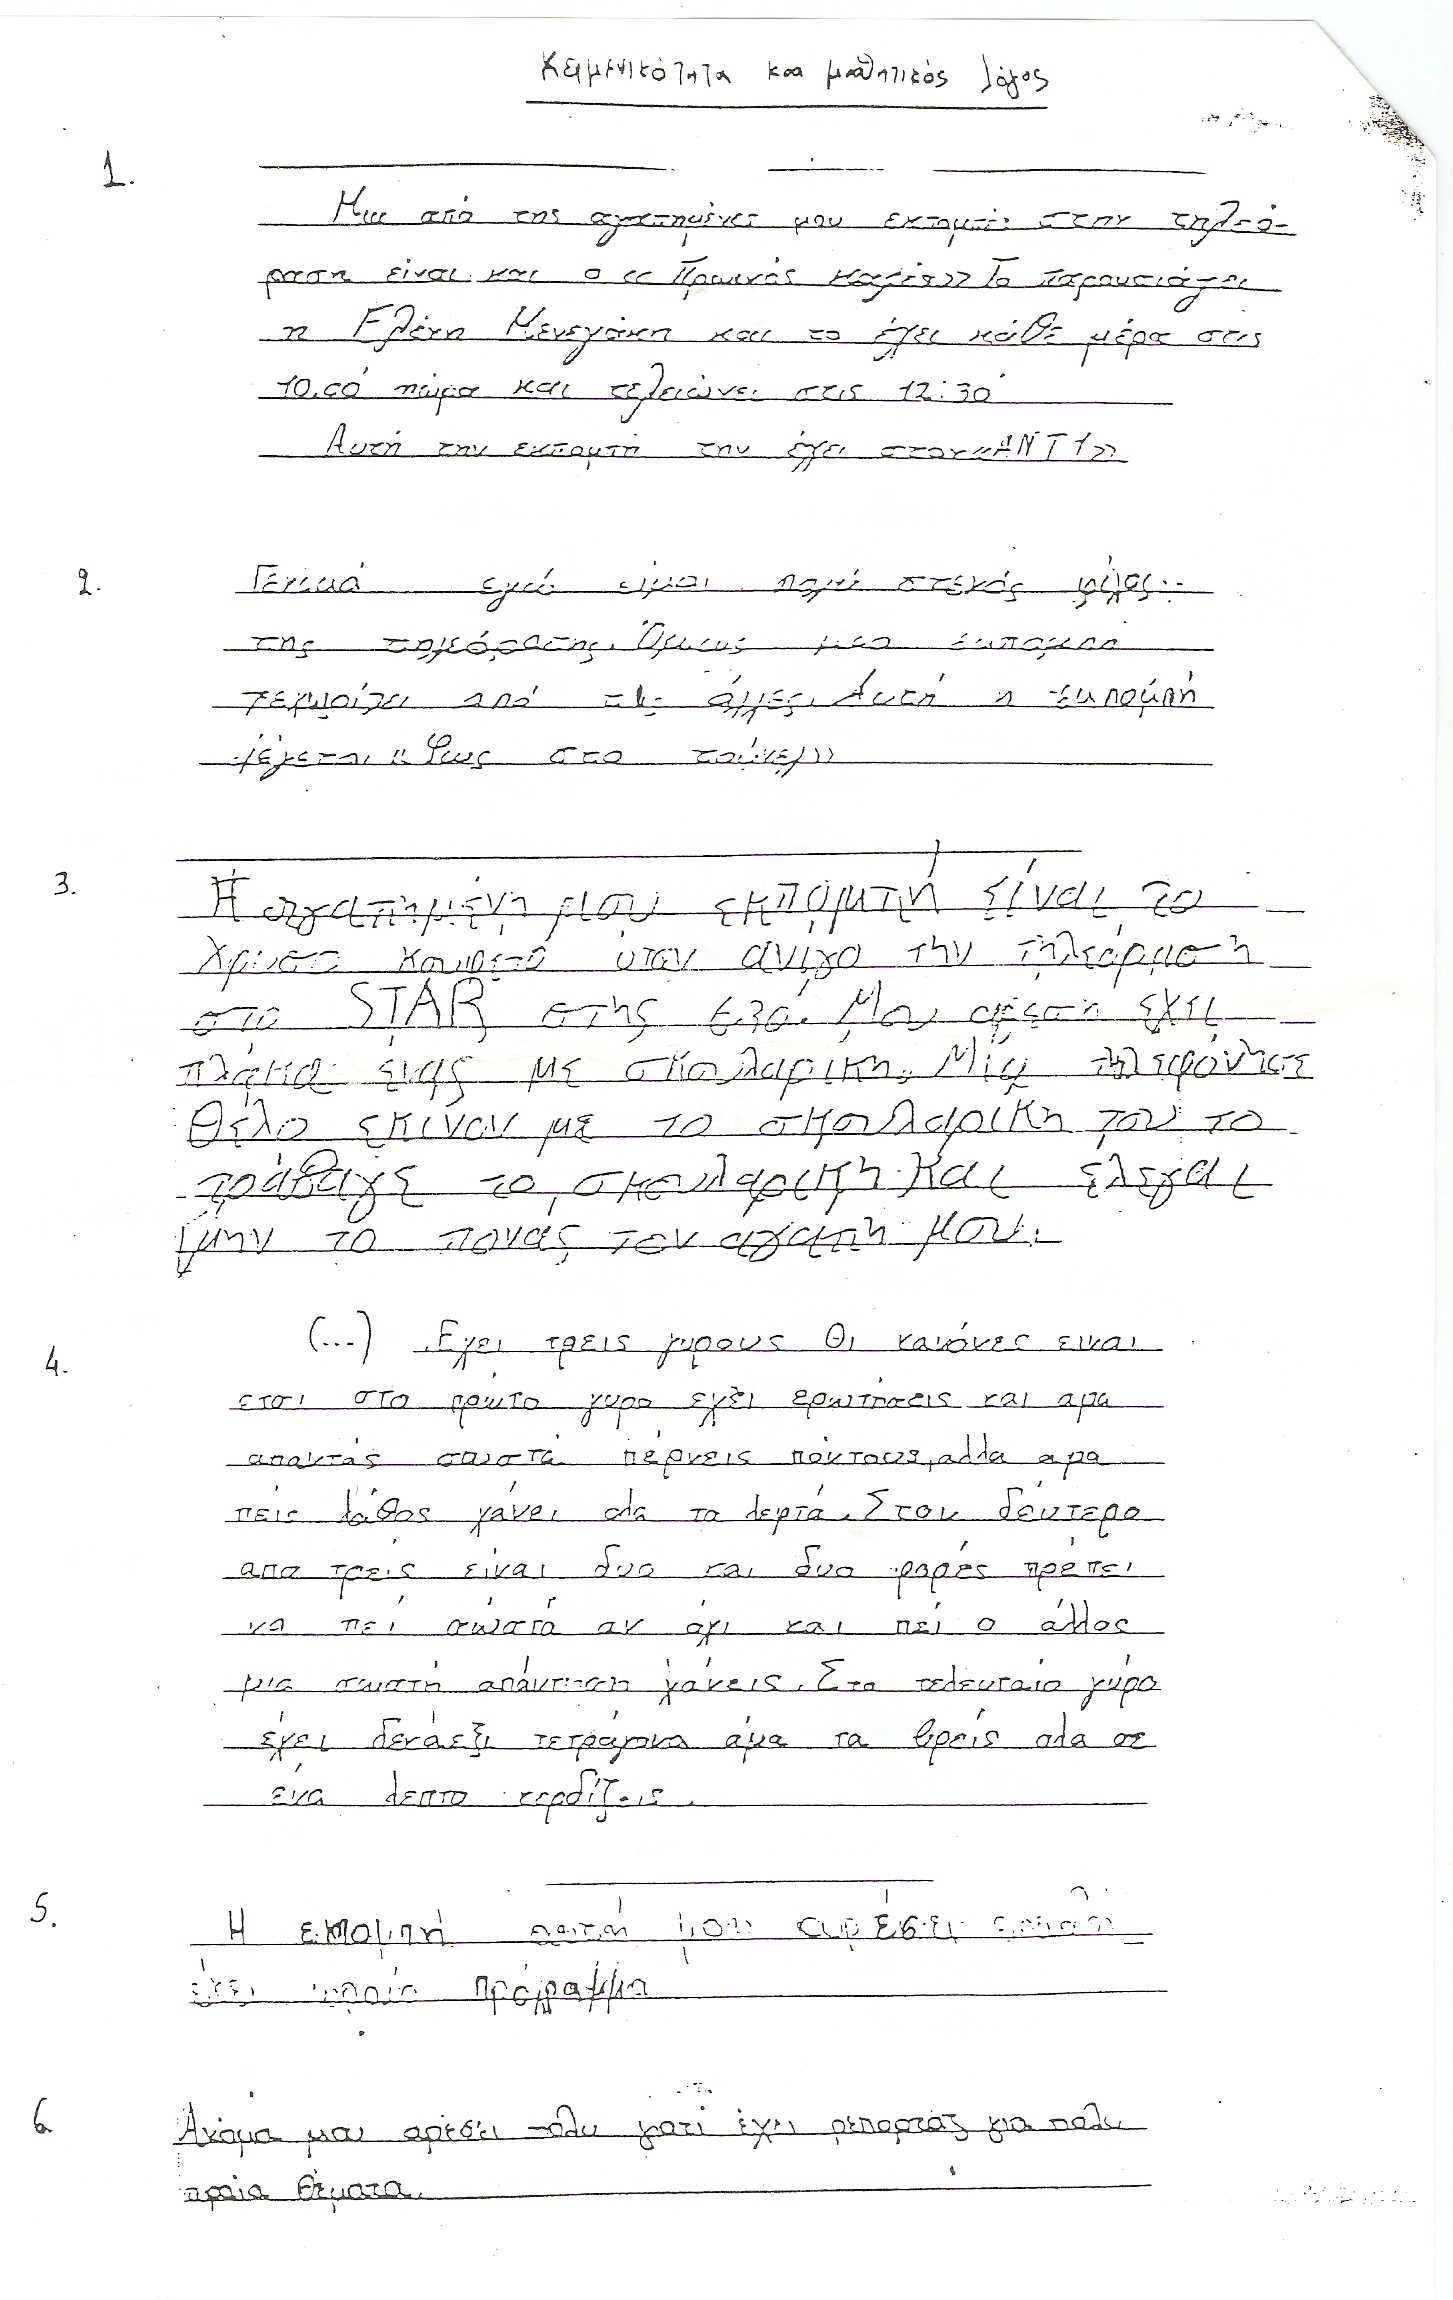 Κειμενικότητα και μαθητικός λόγος
1.
Μια από της αγαπημένες μου εκπομπές στην τηλεό-
ραση είναι και ο «Πρωινός καφές» Το παρουσιάζει
η Ελένη Μενεγάκη και το έχει κάθε μέρα στις
10.00 πώρα και τελειώνει στις 12:30
Αυτή την εκπομπή την έχει στον «ΑΝΤ1»
2.
Γενικά εγώ είμαι πολύ στενός φίλος
της τηλεόρασης. Όμως μια εκπομπή
ξεχωρίζει από τις άλλες. Αυτή η εκπομπή
λέγεται «Φως στο τούνελ»
3.
Η αγαπημένη μου εκπομπή είναι το
χρυσό κουφετό όταν ανιγο την τηλεόραση
στο STAR στης 6.30. Μου αρέση έχει
πλάκα ένας με σκουλαρικη. Μία τηλεφόνησε
θέλο εκίναν με το σκουλαρικη του το
τράβαγε το σκουλαρικη και έλεγαι
μην το πονάς τον αγαπη μου.
4.
(...) Εχει τρεις γυρους Οι κανόνες ειναι
ετσι στο πρώτο γυρο εχει ερωτήσεις και αμα
απαντάς σωστά πέρνεις πόντους, αλλα αμα
πεις λάθος χάνει ολα τα λεφτά. Στον δεύτερο
απο τρεις είναι δυο και δυο φορές πρέπει
να πεί σωστά αν όχι και πεί ο άλλος
μια σωστή απάντηση χάνεις. Στο τελευταίο γύρο
έχει δεκάεξι τετράγωνα άμα τα βρείς ολα σε
ένα λεπτο κερδίζεις.
5.
Η εκπομπή αυτή μου αρέσει επειδή
έχει ωραίο πρόγραμμα
6
Ακόμα μου αρέσει πολυ γιατί έχει ρεπορτάζ για πολυ
ωραία θέματα.